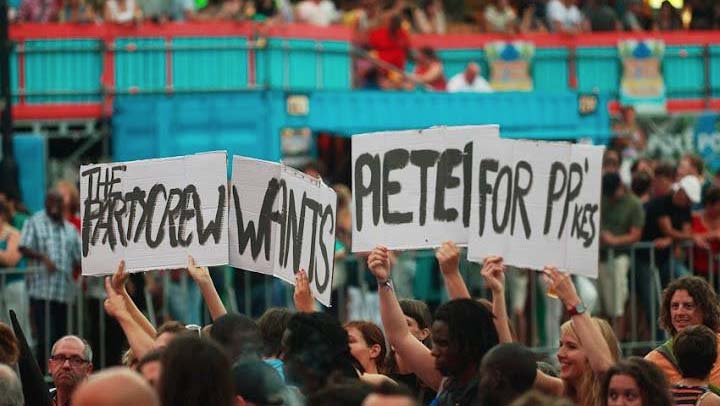 THE
PARTYCREW
WANTS
PIETEI
FOR PP'
KES